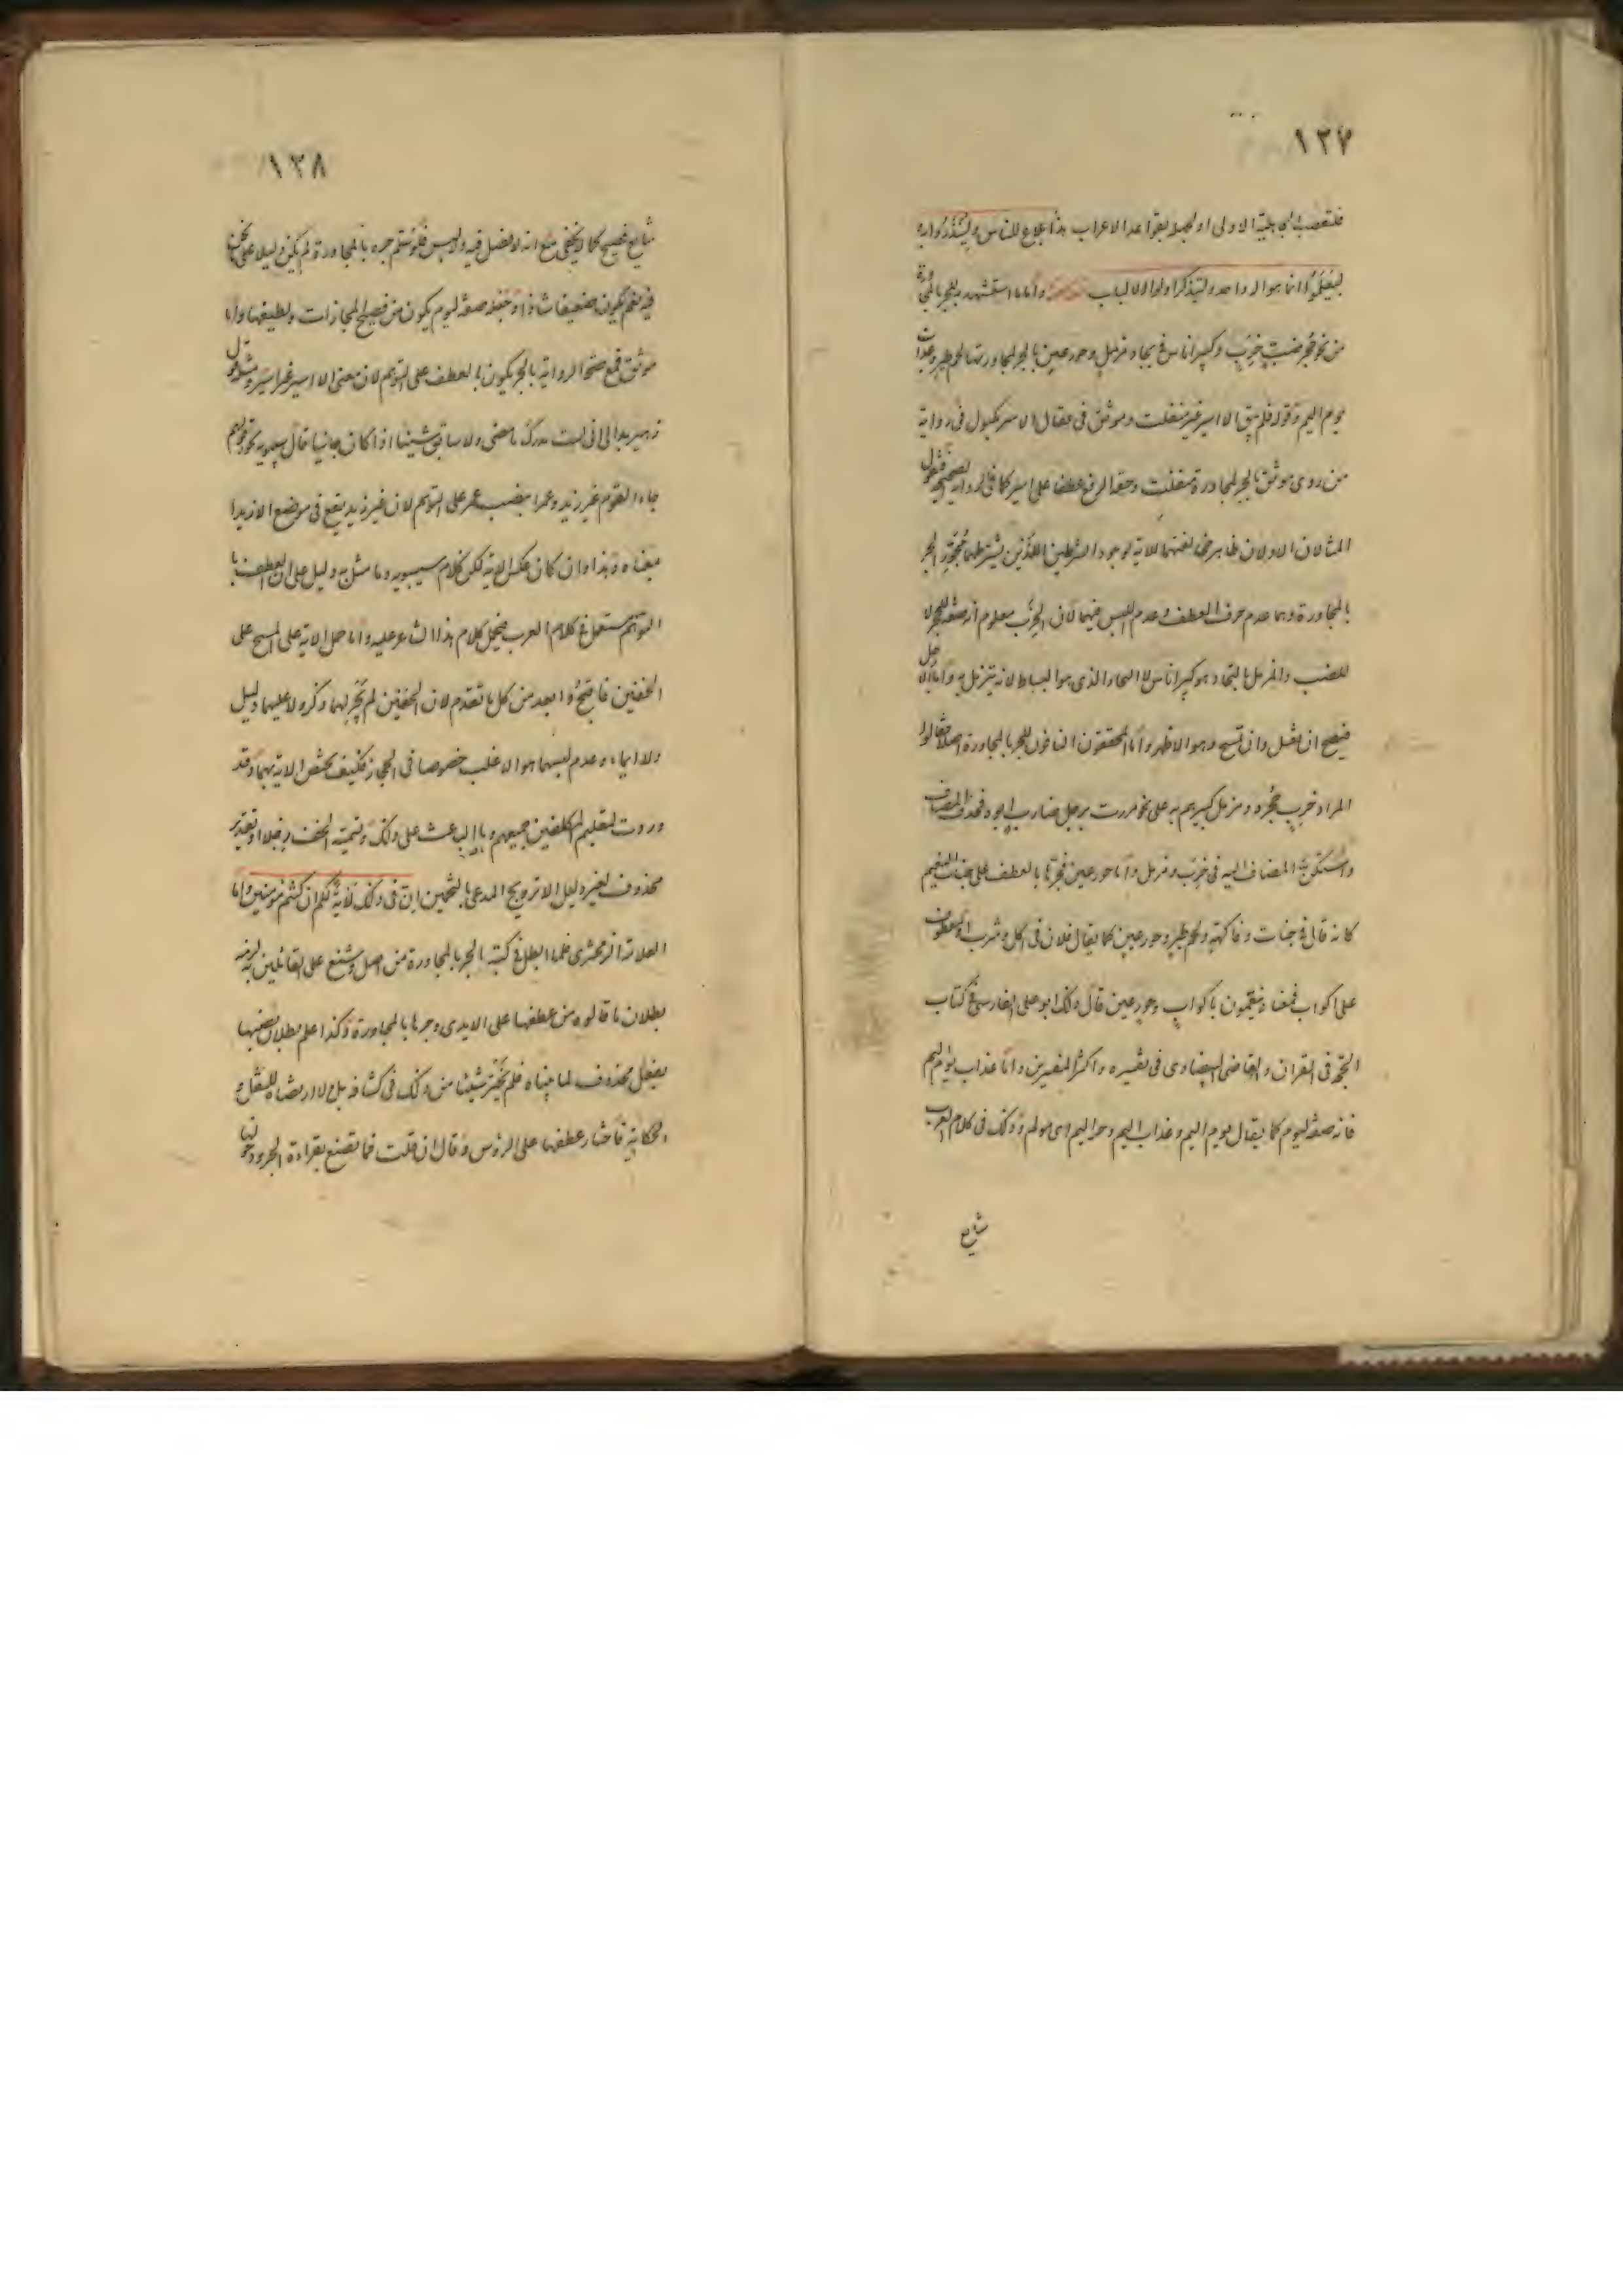 ١٢٧
فلتعصب الجاهلية الاولى او لجهله بقواعد الاعراب هذا بلاغ للناس ولينذروا به
ليعلموا انما هو اله واحد وليذكر اولوا الالباب واما ما استشهد به للجر بالمجاورة
من نحو جحر ضب خرب وكبير اناس في بجاد مزمل وحور عين بالجر لمجاورتها لحم طير وعذاب
يوم اليم وقوله فلم يبق الا اسير غير منفلت وموثق في عقال الاسر مكبول في رواية
من روى موثق بالجر لمجاورة منفلت وحقه الرفع عطفا على اسير كما في الرواية الصحيحة فنقول
المثالان الاولان ظاهر مخالفتهما للاية لوجود الشرطين اللذين يشترطهما مجوز الجر
بالمجاورة وهما عدم حرف العطف وعدم اللبس فيهما لان الخرب معلوم انه صفة للجحر لا
للضب والمزمل بالبجاد هو كبير اناس لا البجاد الذي هو البساط لانه يتزمل به واما الارجل
فيصح ان تغسل وان تمسح وهو الاظهر واما المحققون النافون للجر بالمجاورة اصلا فقالوا
المراد خرب جحره ومزمل كبيرهم به على نحو مررت برجل ضارب ابوه فحذف المضاف
واستكن المضاف اليه في خرب ومزمل واما حور عين فجرها بالعطف على جنات النعيم
كانه قال في جنات وفاكهة ولحم طير وحور عين كما يقال فلان في اكل وشرب او بالعطف
على اكواب فمعناه ينعمون باكواب وحور عين قال ذلك ابو علي الفارسي في كتاب
الحجة في القران والقاضي البيضاوي في تفسيره واكثر المفسرين واما عذاب يوم اليم
فانه صفة ليوم كما يقال يوم اليم وعذاب اليم وحر اليم اي مولم وذلك في كلام العرب
شايع
١٢٨
شايع فصيح كما لا يخفى مع انه لا فصل فيه ولا لبس فلو سلم جره بالمجاورة لم يكن دليلا على ما نحن
فيه نعم يكون ضعيفا شاذا وجعله صفة ليوم يكون من فصيح المجازات ولطيفها واما
موثق فمع صحة الرواية بالجر يكون بالعطف على التوهم لان معنى الا اسير غير اسير ومثله قول
زهير بدا لي اني لست مدرك ما مضى ولا سابق شيئا اذا كان جائيا قال سيبويه نحو قولهم
جاء القوم غير زيد وعمرا بنصب عمر على التوهم لان غير زيد يقع في موضع الا زيدا
بمعناه وهذا وان كان عكس الاية لكن كلام سيبويه وما مثل به دليل على ان العطف با
التوهم مستعمل في كلام العرب فيحمل كلام هذا الشاعر عليه واما حمل الاية على المسح على
الخفين فاقبح وابعد من كل ما تقدم لان الخفين لم يجر لهما ذكر ولا عليهما دليل
ولا ايماء وعدم لبسهما هو الاغلب خصوصا في الحجاز فكيف تخص الاية بهما وقد
وردت لتعليم المكلفين جميعهم وما الباعث على ذلك وتسمية الخف رجلا او تقدير
محذوف لغير دليل الا ترويج المدعى بالتخمين ان في ذلك لاية لكم ان كنتم مومنين واما
العلامة الزمخشري فلما ابطل في كتبه الجر بالمجاورة من اصله وشنع على القائلين به لزمه
بطلان ما قالوه من عطفها على الايدي وجرها بالمجاورة وكذا علم بطلان نصبها
بفعل محذوف لما بيناه فلم يختر شيئا من ذلك في كشافه بل ولا ارتضاه للنقل و
الحكاية فاختار عطفها على الرؤس وقال ان قلت فما تصنع بقراءة الجر ودخولها